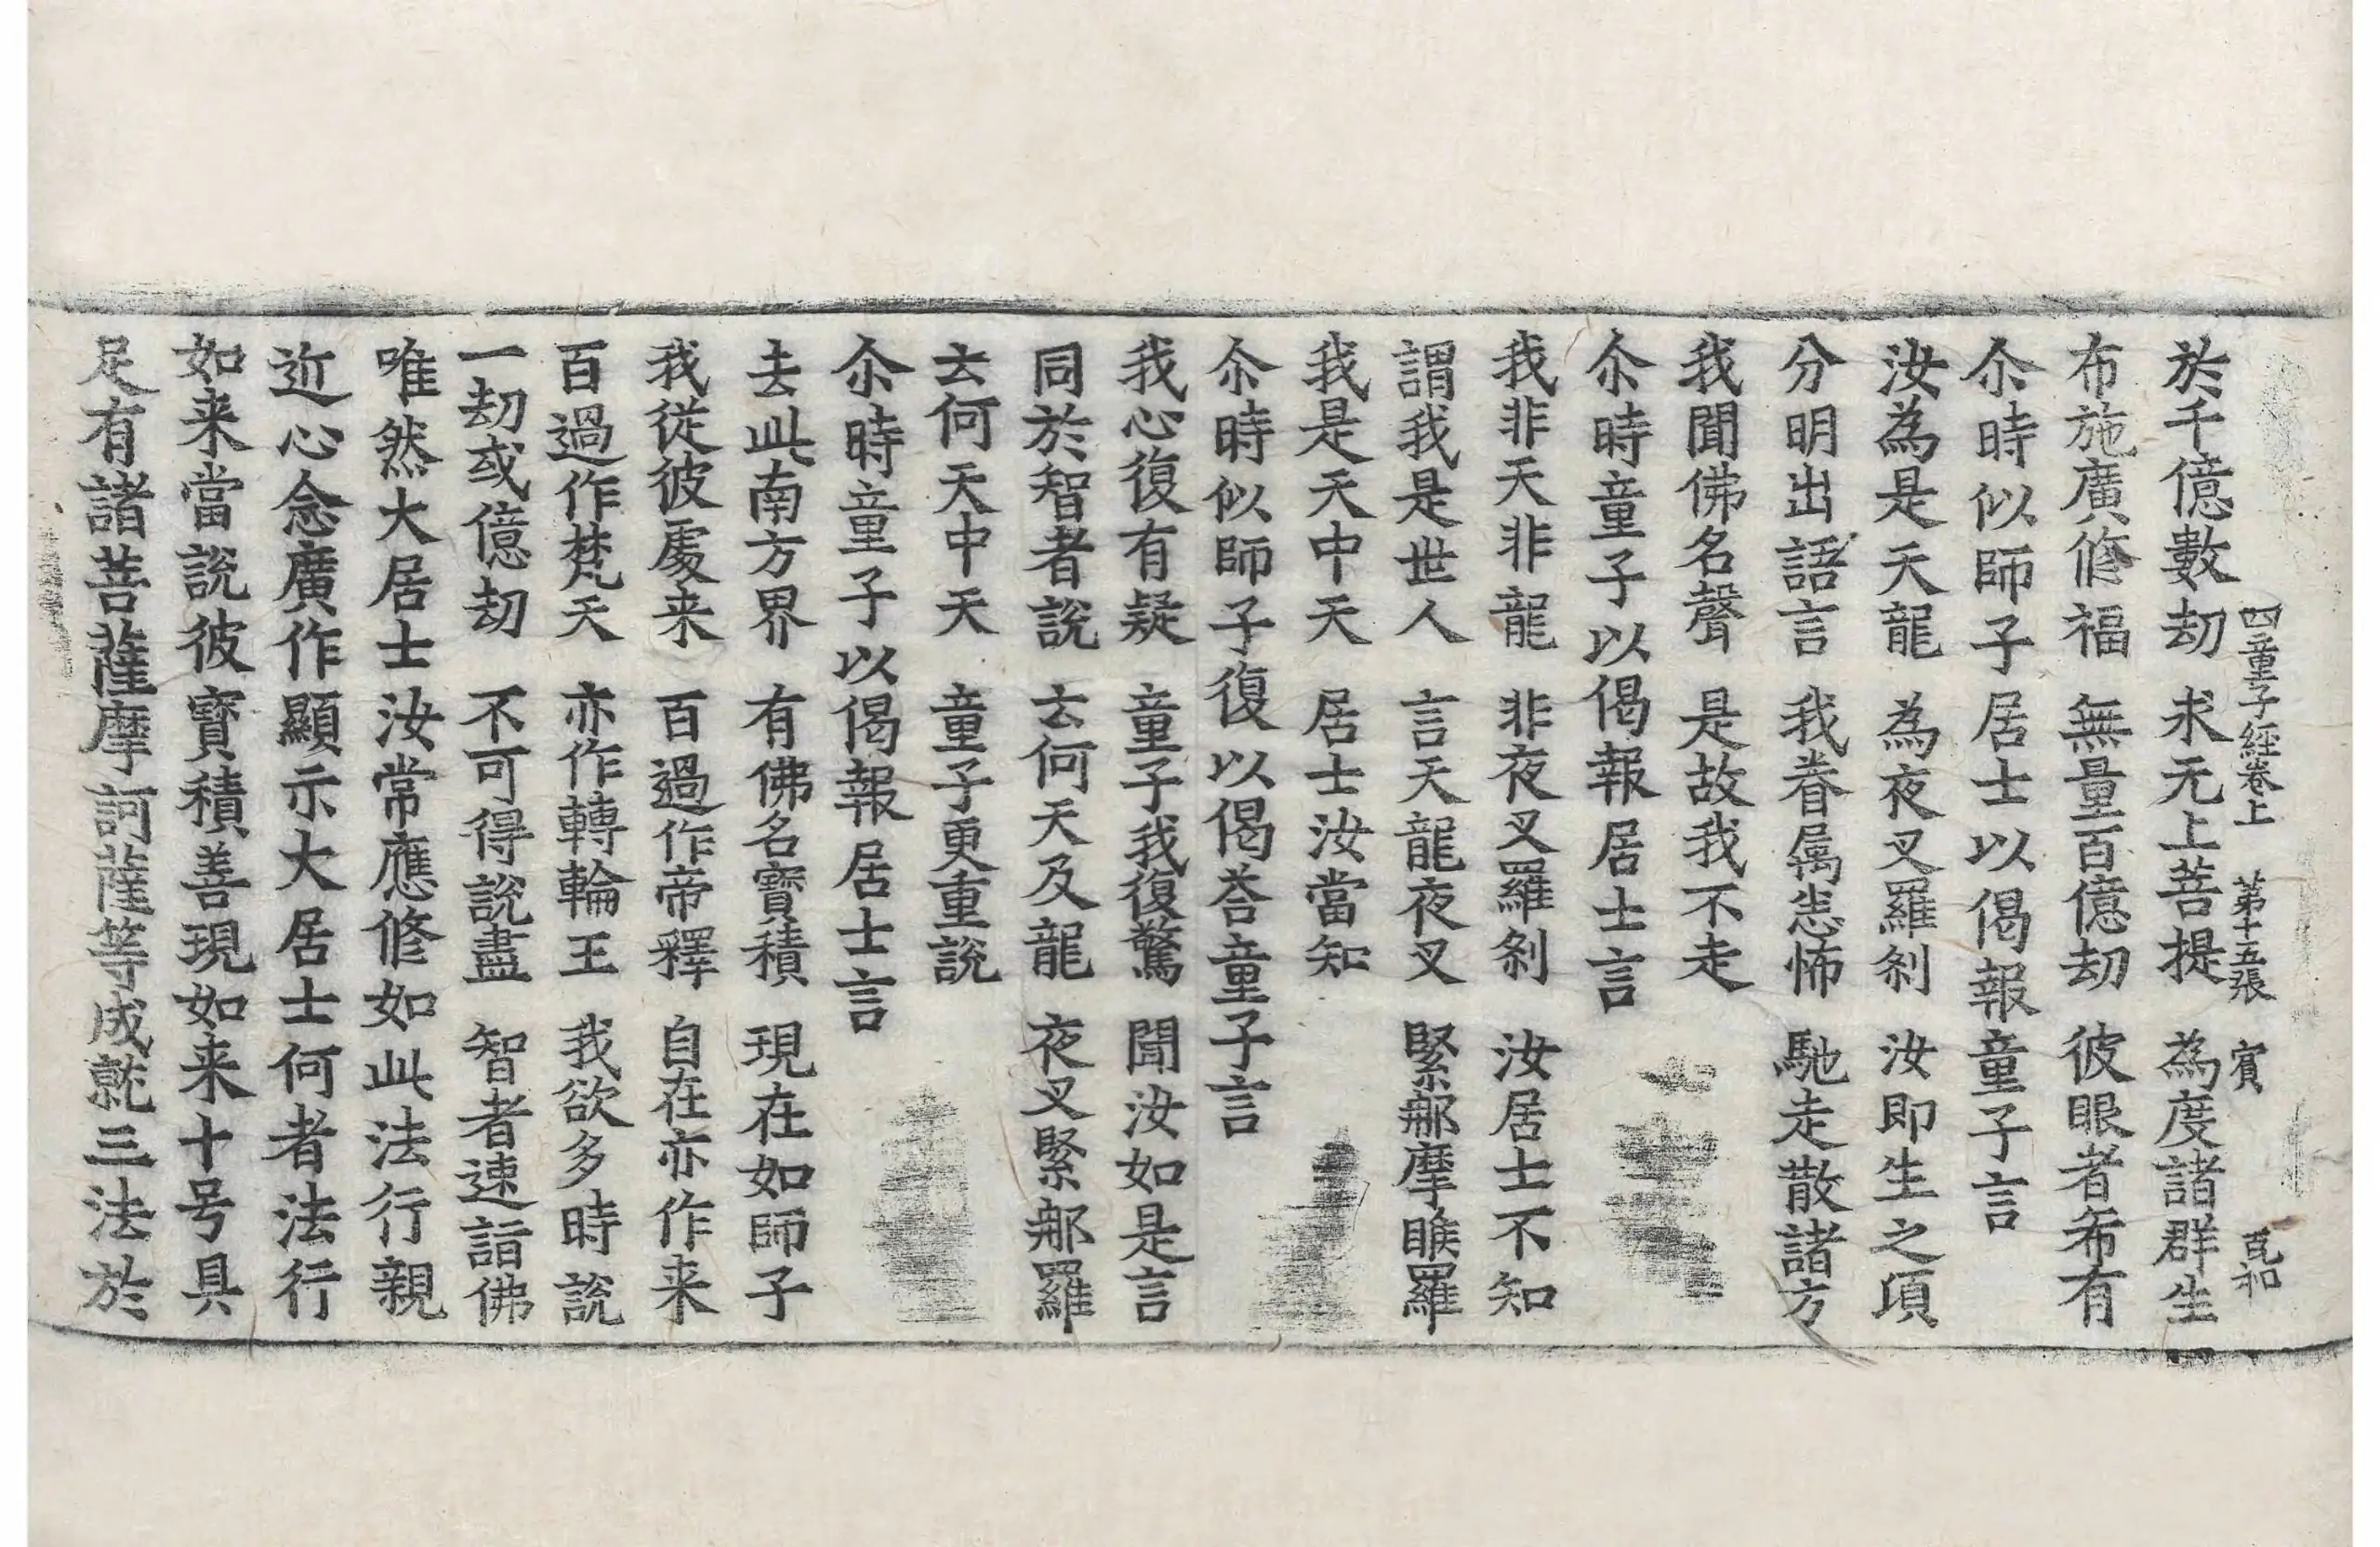 四童子經卷上　第十五張　賓　克和
於千億數劫　求无上菩提　為度諸群生
布施廣修福　無量百億劫　彼眼者希有
尒時似師子居士以偈報童子言
汝為是天龍　為夜叉羅剎　汝即生之項
分明出語言　我眷屬恙怖　馳走散諸方
我聞佛名聲　是故我不走
尒時童子以偈報居士言
我非天非龍　非夜叉羅剎　汝居士不知
謂我是世人　言天龍夜叉　緊那摩睺羅
我是天中天　居士汝當知
尒時似師子復以偈荅童子言
我心復有疑　童子我復驚　聞汝如是言
同於智者說　去何天及龍　夜叉緊那羅
去何天中天　童子更重說
尒時童子以偈報居士言
去此南方界　有佛名寶積　現在如師子
我從彼處来　百過作帝釋　自在亦作来
百過作梵天　亦作轉輪王　我欲多時說
一劫或億劫　不可得說盡　智者速詣佛
唯然大居士汝常應修如此法行親
近心念廣作顯示大居士何者法行
如来當說彼寶積善現如来十号具
足有諸菩薩摩訶薩等成就三法於